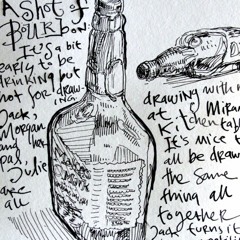 A Shot of
Bourbon
It's a bit
early to be
drinking but
not for draw-
ing.
Jack,
Morgan
and her
pal
Julie
are
all
drawing with m
at Mira
Kitchen tab
It's nice t
all be draw
the same
thing all
together
turns it